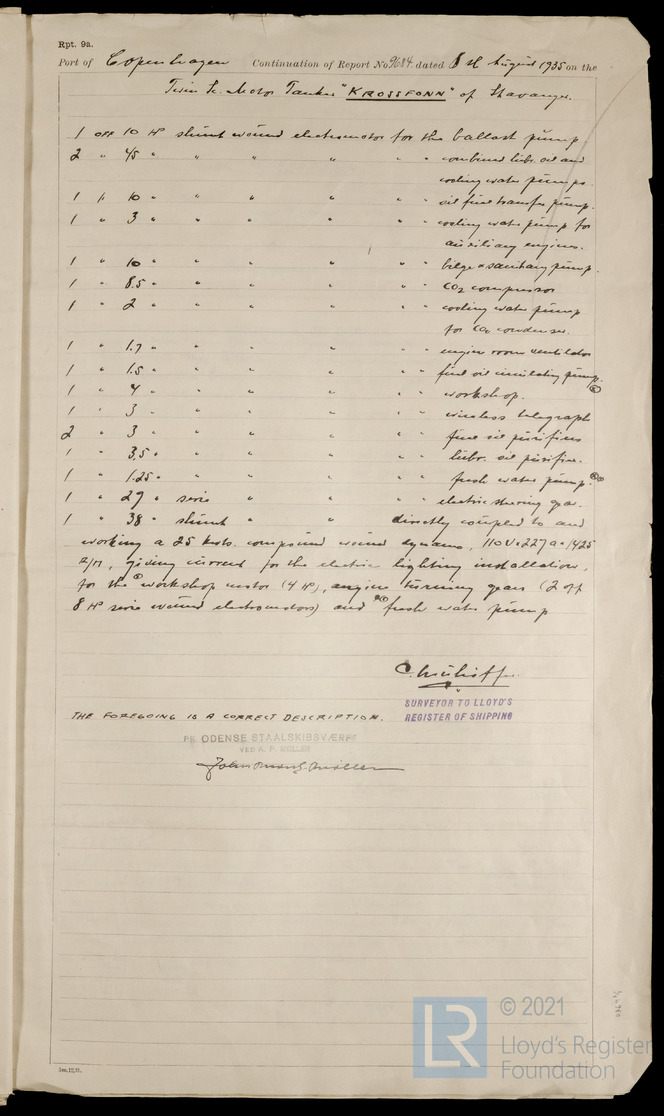 Rpt. 9a.
Port of Copenhagen Continuation of Report No 9684 dated 8th August 1935 on the
Twin Sc. Motor Tanker "KROSSFONN" of Stavanger.
1 off 10 HP shunt wound electromotor for the ballast pump
2 " 45 " " " " " " combined lubr. oil and
cooling water pumps.
1 " 10 " " " " " " oil fuel transfer pump.
1 " 3 " " " " " " cooling water pump for
auxiliary engines.
1 " 10 " " " " " " bilge & sanitary pump.
1 " 8.5 " " " " " " CO2 compressor
1 " 2 " " " " " " cooling water pump
for CO2 condenser.
1 " 1.7 " " " " " " engine room ventilator
1 " 1.5 " " " " " " fuel oil circulating pump.
1 " 4 " " " " " " workshop.
1 " 3 " " " " " " wireless telegraph
2 " 3 " " " " " " fuel oil purifiers
1 " 3.5 " " " " " " lubr. oil purifier.
1 " 1.25 " " " " " " fresh water pump.
1 " 27 " serie " " " " electric steering gear.
1 " 38 " shunt " " directly coupled to and
working a 25 kwts. compound wound dynamo, 110 V x 227 a x 1425
R/M, giving current for the electric lighting installation,
for the workshop motor (4 HP), engine turning gears (2 off
8 HP serie wound electromotors) and fresh water pump
SURVEYOR TO LLOYD'S
REGISTER OF SHIPPING
THE FOREGOING IS A CORRECT DESCRIPTION.
PR. ODENSE STAALSKIBSVÆRFT
VED A. P. MØLLER
© 2021
LR
Lloyd's Register
Foundation